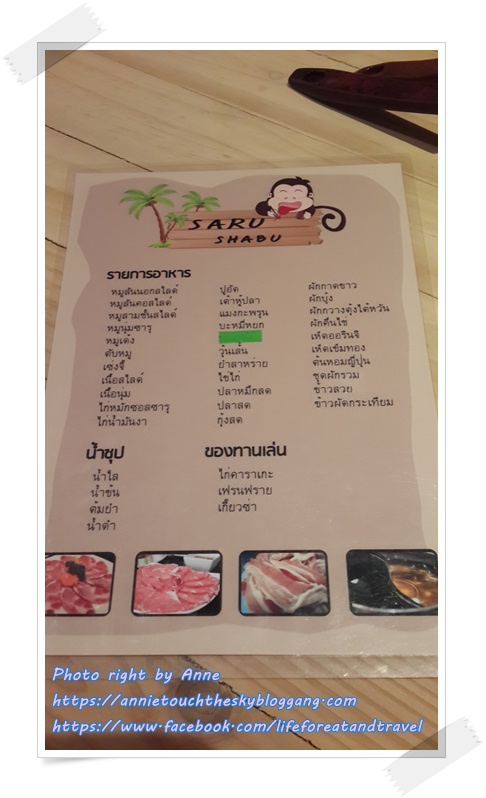 SARU
SHABU
รายการอาหาร
หมูสันนอกสไลด์
หมูสันคอสไลด์
หมูสามชั้นสไลด์
หมูนุ่มซารุ
หมูเด้ง
ตับหมู
เซ่งจี้
เนื้อสไลด์
เนื้อนุ่ม
ไก่หมักซอสซารุ
ไก่น้ำมันงา
ปูอัด
เต้าหู้ปลา
แมงกะพรุน
บะหมี่หยก
วุ้นเส้น
ยำสาหร่าย
ไข่ไก่
ปลาหมึกสด
ปลาสด
กุ้งสด
ผักกาดขาว
ผักบุ้ง
ผักกวางตุ้งไต้หวัน
ผักคื่นไช่
เห็ดออรินจิ
เห็ดเข็มทอง
ต้นหอมญี่ปุ่น
ชุดผักรวม
ข้าวสวย
ข้าวผัดกระเทียม
น้ำซุป
น้ำใส
น้ำข้น
ต้มยำ
น้ำดำ
ของทานเล่น
ไก่คาราเกะ
เฟรนฟราย
เกี๊ยวซ่า
Photo right by Anne
https://annietouchtheskybloggang.com
https://www.facebook.com/lifeforeatandtravel